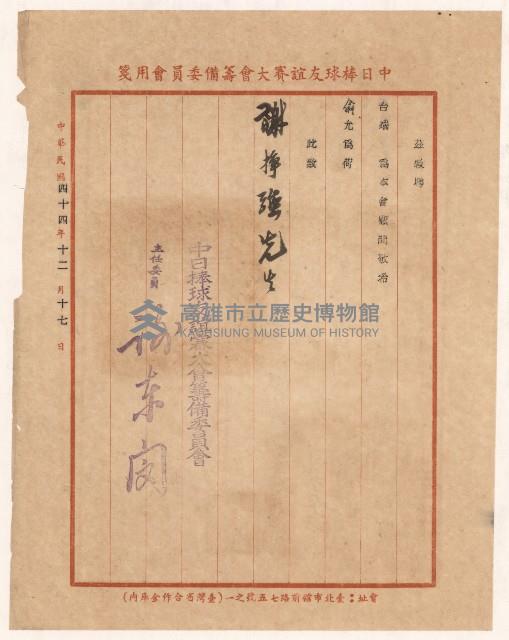 中日棒球友誼賽大會籌備委員會用箋
茲敬聘
台端為本會顧問敬希
俞允為荷
此致
謝掙強先生
中日棒球友誼賽大會籌備委員會
主任委員 楊東閔
中華民國四十四年十二月十七日
會址：臺北市館前路七五號之一(臺灣省合作金庫內)
高雄市立歷史博物館
KAOHSIUNG MUSEUM OF HISTORY